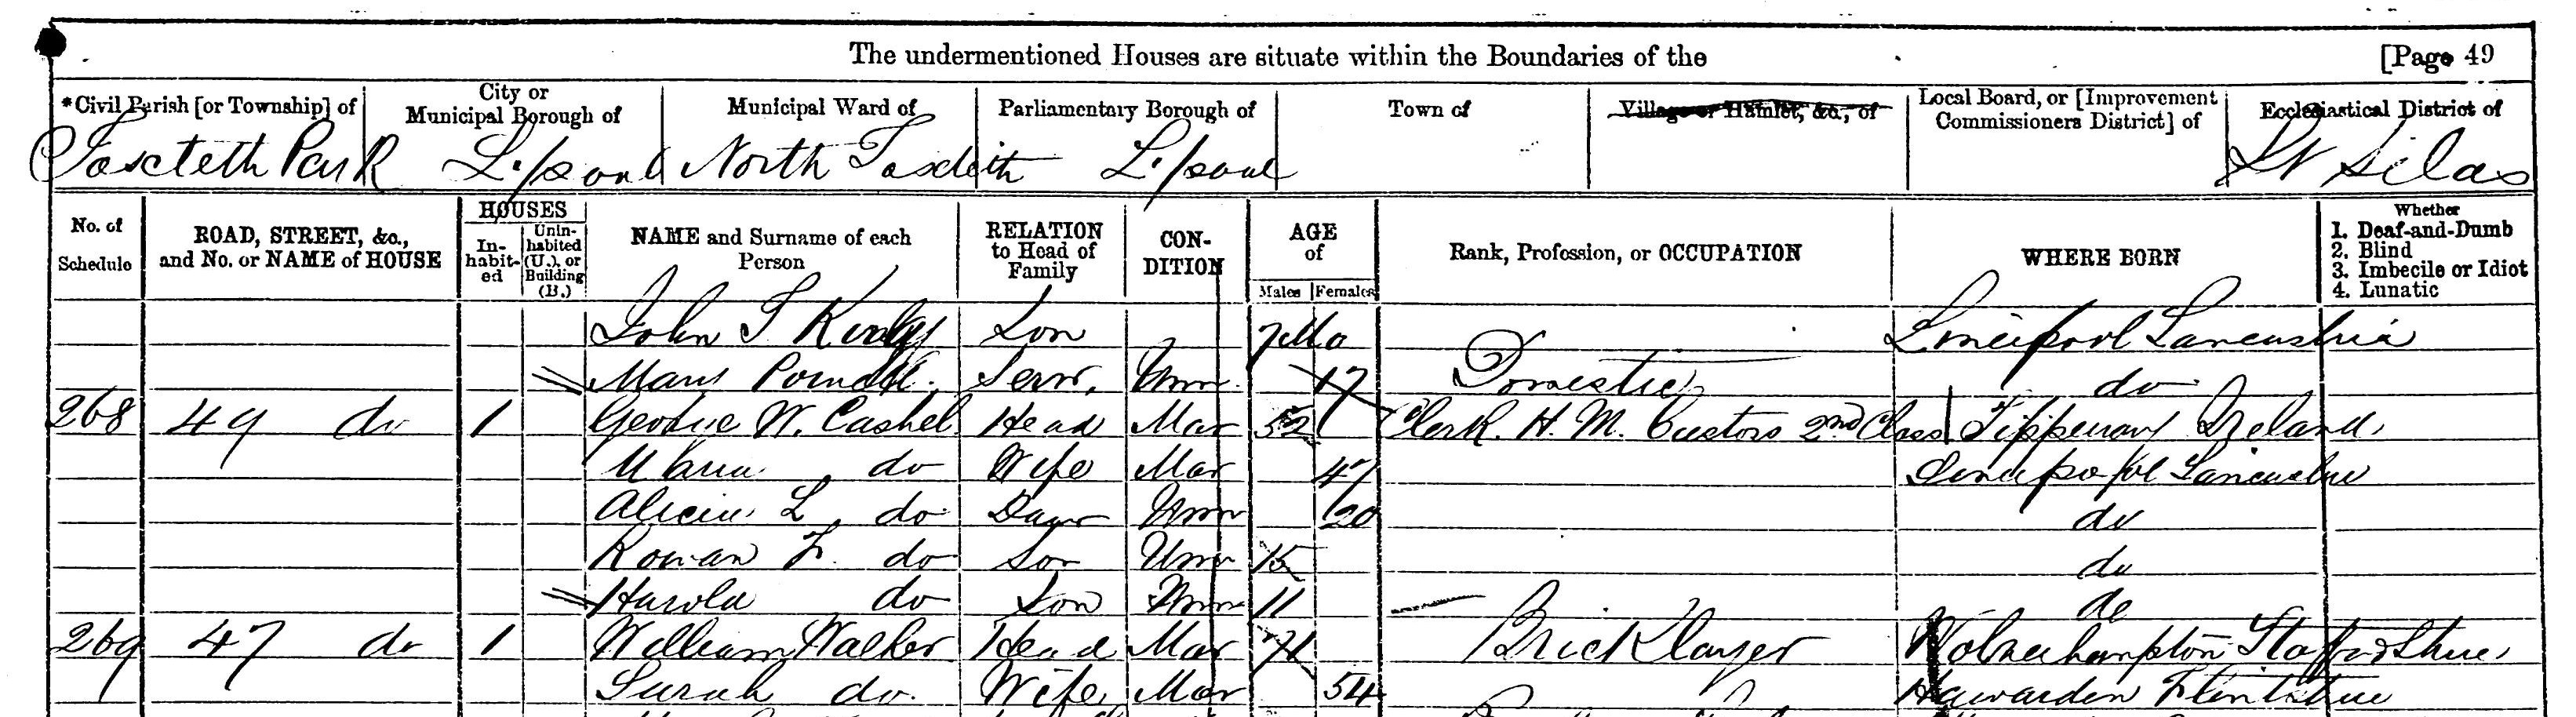 The undermentioned Houses are situate within the Boundaries of the [Page 49
*Civil Parish [or Township] of City or Municipal Borough of Municipal Ward of Parliamentary Borough of Town of Village or Hamlet, &c., of Local Board, or [Improvement Commissioners District] of Ecclesiastical District of
Toxteth Park L'pool North Toxteth L'pool St Silas
No. of Schedule ROAD, STREET, &c., and No. or NAME of HOUSE HOUSES In-habit-ed Unin-habited (U.), or Building (B.) NAME and Surname of each Person RELATION to Head of Family CON-DITION AGE of Males Females Rank, Profession, or OCCUPATION WHERE BORN Whether 1. Deaf-and-Dumb 2. Blind 3. Imbecile or Idiot 4. Lunatic
John T Son 7 Mo Liverpool Lancashire
Mary Serv. Unm. 17 Domestic do
268 49 do 1 George W. Cashel Head Mar 52 Clerk. H. M. Customs 2nd Class Tipperary Ireland
Maria do Wife Mar 47 Liverpool Lancashire
Alicia L do Daur Unm 20 do
Rowan F. do Son Unm 15 do
Harold do Son Unm 11 do
269 47 do 1 William Walker Head Mar 71 Bricklayer Wolverhampton Staffordshire
Sarah do. Wife Mar 54 Hawarden Flintshire